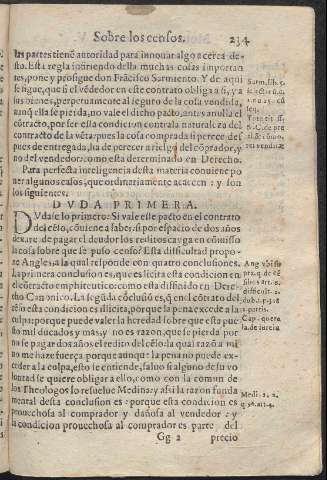 Sobre los censos. 234
las partes tienē autoridad para innouar algo acerca de-
sto. Esta regla infiriendo della muchas cosas importan
tes, pone y prosigue don Frācisco Sarmiento. Y de aqui
se sigue, que si el vēdedor en este contrato obliga a si, y a
sus bienes, perpetuamente al seguro de la cosa vendida,
aunq̄ ella se pierda, no vale el dicho pacto, antes anulla el
cōtracto, por ser esta condicion contra la naturaleza del
contracto de la vēta: pues la cosa comprada si perece des
pues de entregada, ha de perecer a riesgo del cōprador, y
no del vendedor: como esta determinado en Derecho.
Para perfecta inteligencia desta materia conuiene po
ner algunos casos, que ordinariamente acaecen: y son
los siguientes.
DVDA PRIMERA.
Dudase lo primero: Si vale este pacto en el contrato
del cēso, cōuiene a saber, si por espacio de dos años
dexare de pagar el deudor los reditos cayga en cōmisso
la cosa sobre que se puso censo? Esta dificultad propo-
ne Angles: a la qual respōde con quatro conclusiones.
La primera conclusion es, que es licita esta condicion en
el cōtracto emphiteutico: como esta difinido en Dere-
cho Canonico. La segūda cōclusiō es, q̄ en el cōtrato del
cēso esta condicion es illicita, porque la pena excede a la
culpa: porque puede valer la heredad sobre que esta pue
sto mil ducados y mas, y no es razon, que se pierda por
no se pagar dos años el redito del cēso: la qual razō a mi
no me haze fuerça, porque aunque la pena no puede ex-
ceder a la culpa, esto se entiende, saluo si alguno de su vo
luntad se quiere obligar a ello, como con la comun de
los Theologos lo resuelue Medina: y assi la razon funda
mental desta conclusion es: porque esta condicion es
prouechosa al comprador y dañosa al vendedor: y
la condicion prouechosa al comprador es parte del
Gg 2 precio
Ang. vbi su
Medi. 1. 2.